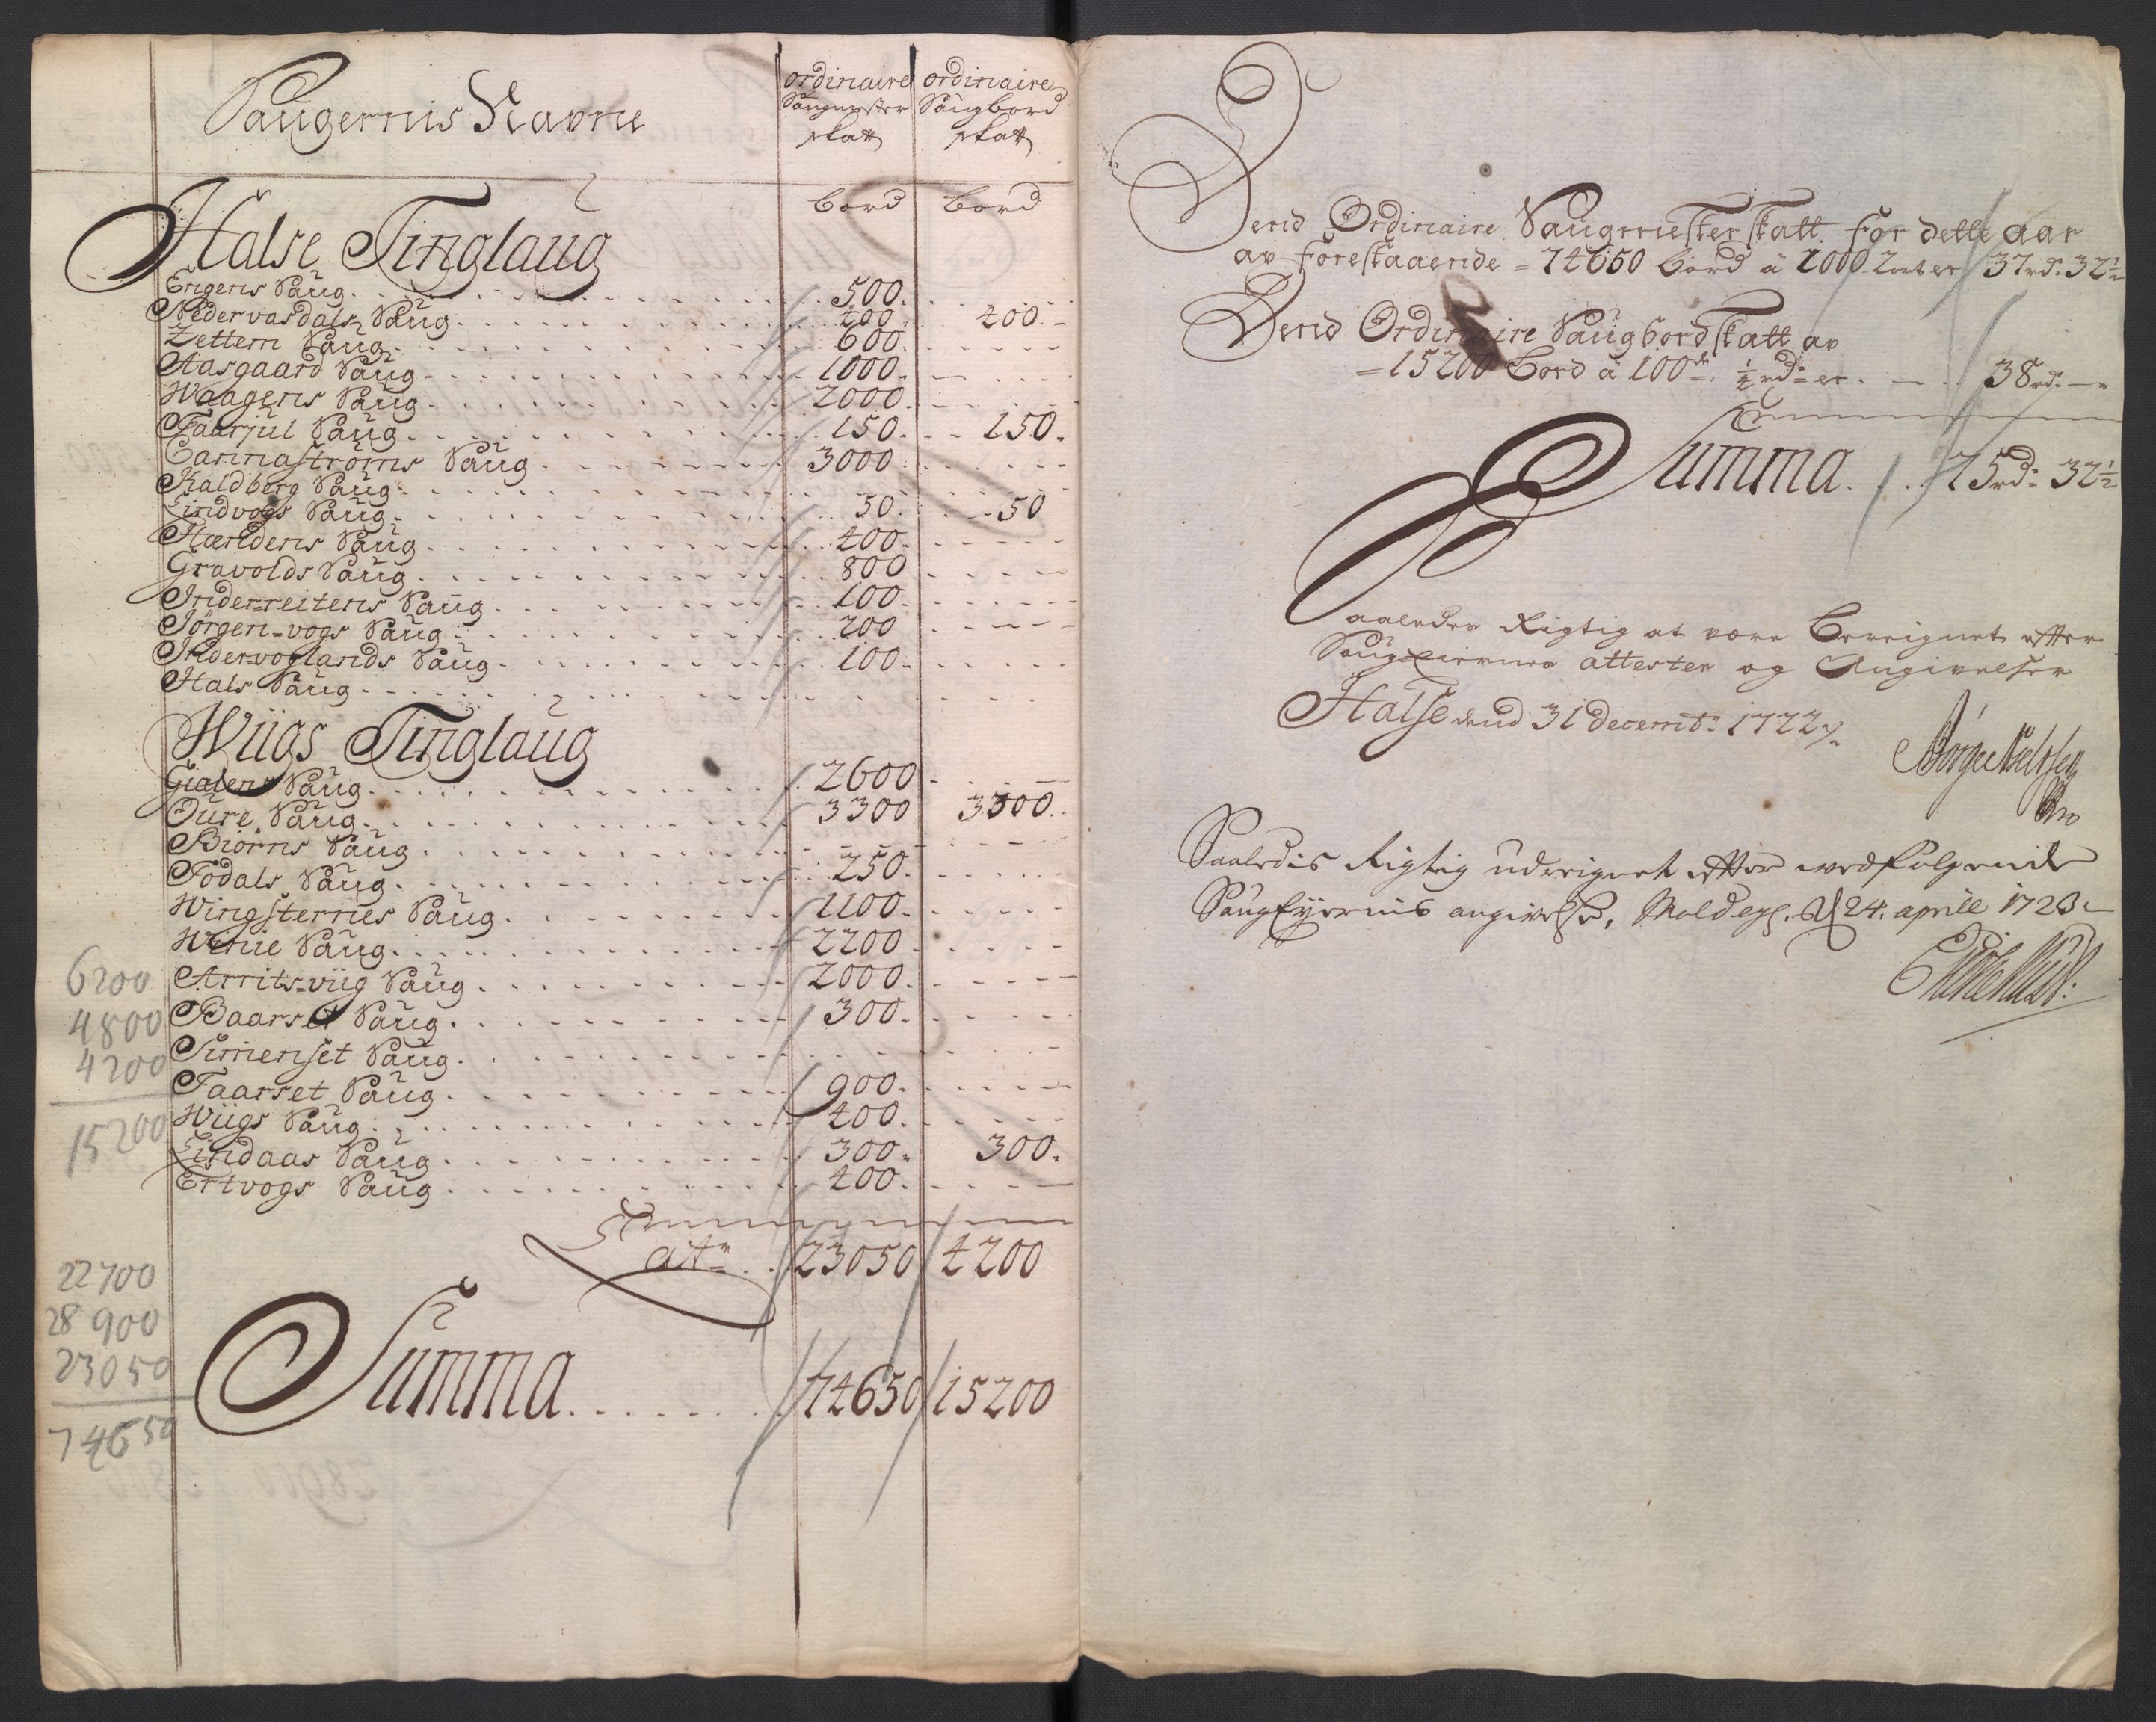 Saugernis Navne
ordinaire Saugmester skatt
ordinaire Saugbord skatt
bord bord
Halse Tinglaug
Engens Saug 500.
Nedervasdals Saug 400 400.
Zettem Saug 600.
Aasgaard Saug 1000.
Waagens Saug 2000.
Taarjul Saug 150. 150.
Cannastrøms Saug 3000
Kaldberg Saug
Lindvogs Saug 50. 50
Hændens Saug 400.
Gravolds Saug 800
Inder-reitens Saug 100.
Jørgen-vogs Saug 200
Indervoglands Saug 100.
Hals Saug
Wiigs Tinglaug
Gialens Saug 2600
Oure Saug 3300 3300.
Biørns Saug
Todals Saug 250.
Wingsternes Saug 1100.
Winie Saug 2200
Arrits-viig Saug 2000.
Baarset Saug 300.
Simenset Saug
Taarset Saug 900.
Wiigs Saug 400.
Lindaas Saug 300. 300.
Ertvogs Saug 400.
Lat. 23050 4200
Summa 74650 15200
6200
4800
4200
15200
22700
28900
23050
74650
Dend Ordinaire Saugmesterskatt for dette aar
av forestaaende = 74650 bord â 1000 2 ort er 37 rd: 32½
Dend Ordinaire Saugbordskatt av
= 15200 Bord â 100de ½ rd: er 38 rd: —
Summa. 75 rd: 32½
Saaledes Rigtig at være Bereignet efter
Saug-Eiernes attester og Angivelser
Halse dend 31 decembr: 1722
Saaledis Rigtig udreignet efter medfølgende
Saugeyernis angivelse, Molde d 24. aprill 1723